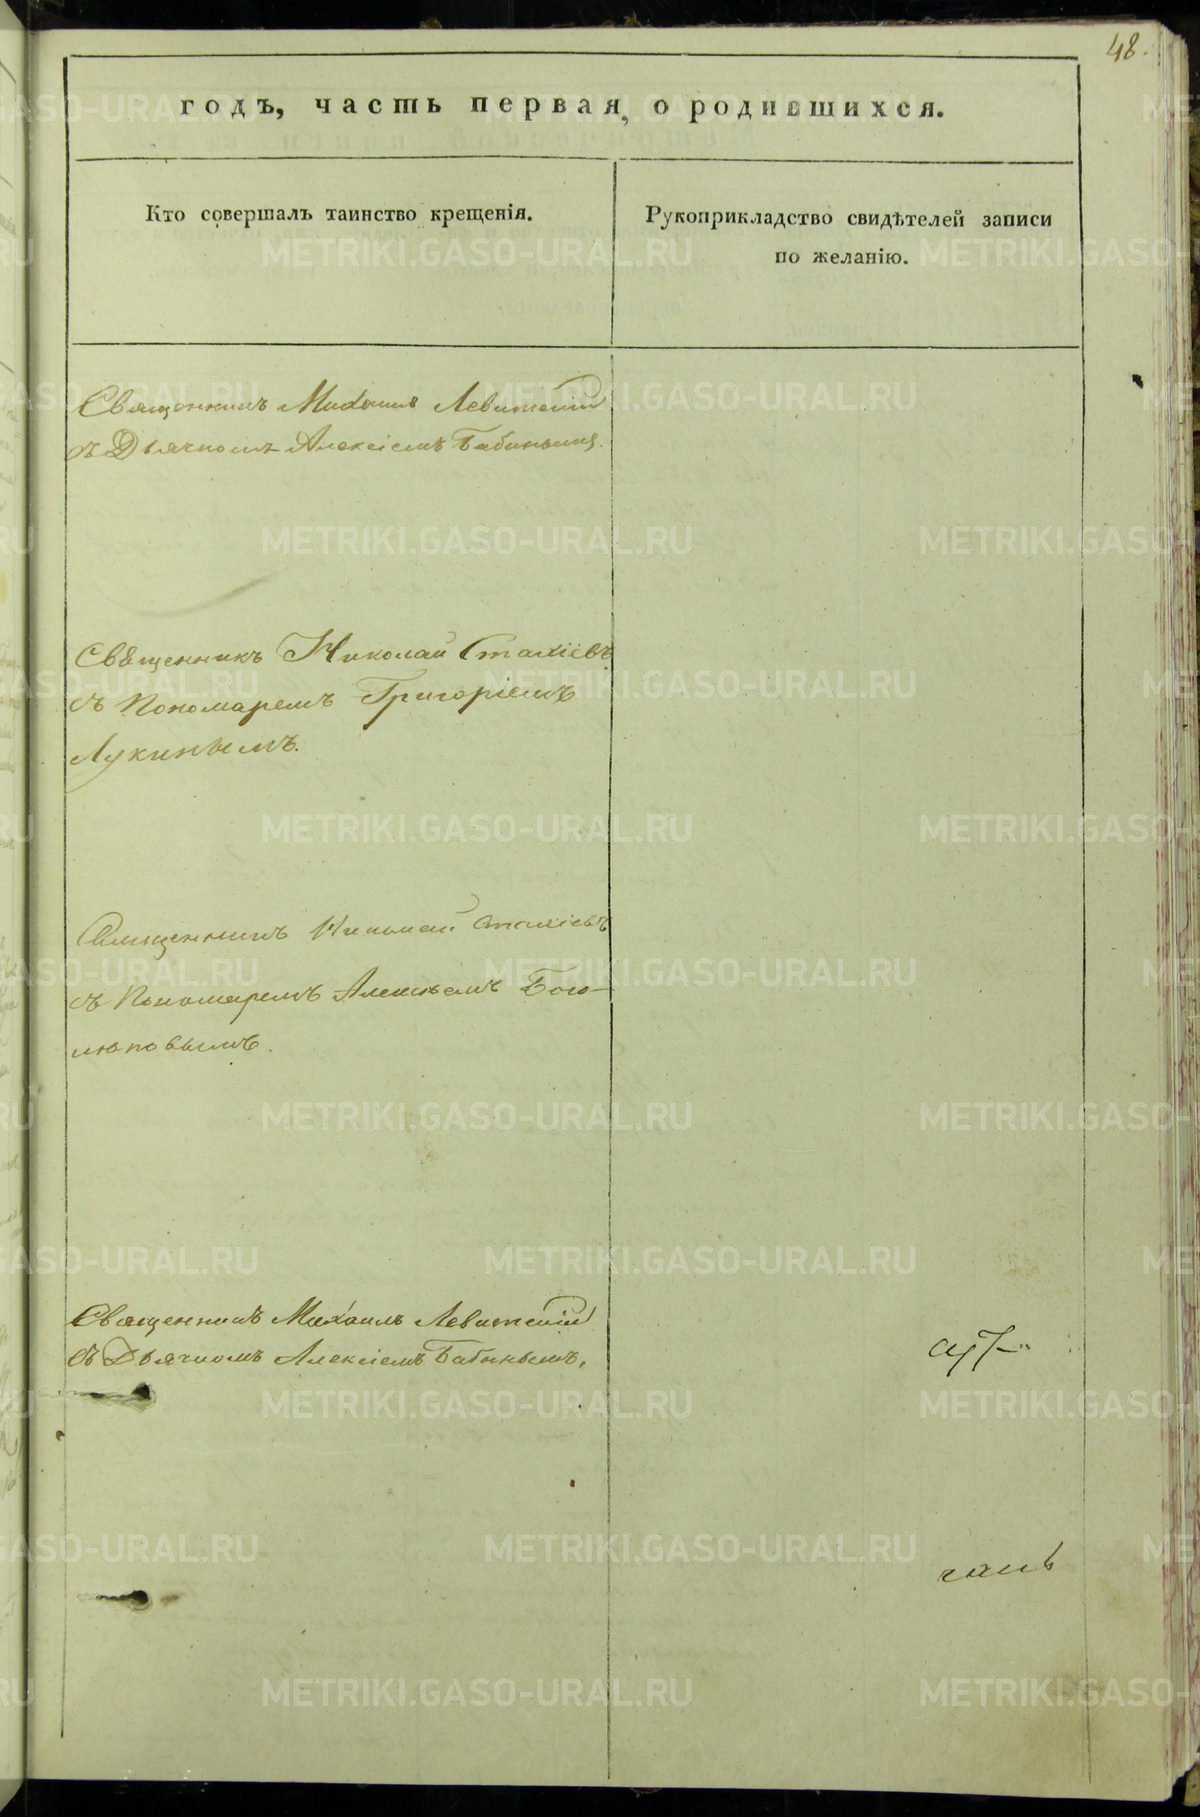 48.
годъ, часть первая, о родившихся.
Кто совершалъ таинство крещенія.
Рукоприкладство свидѣтелей записи
по желанію.
Священникъ Михаилъ Левитскій
съ Дьячкомъ Алексіемъ Бабинымъ.
Священникъ Николай Стахіевъ
съ Пономаремъ Григоріемъ
Лукинымъ.
Священникъ Николай Стахіевъ
съ Пономаремъ Алексѣемъ Бого-
люповымъ.
Священникъ Михаилъ Левитскій
съ Дьячкомъ Алексіемъ Бабинымъ.
METRIKI.GASO-URAL.RU